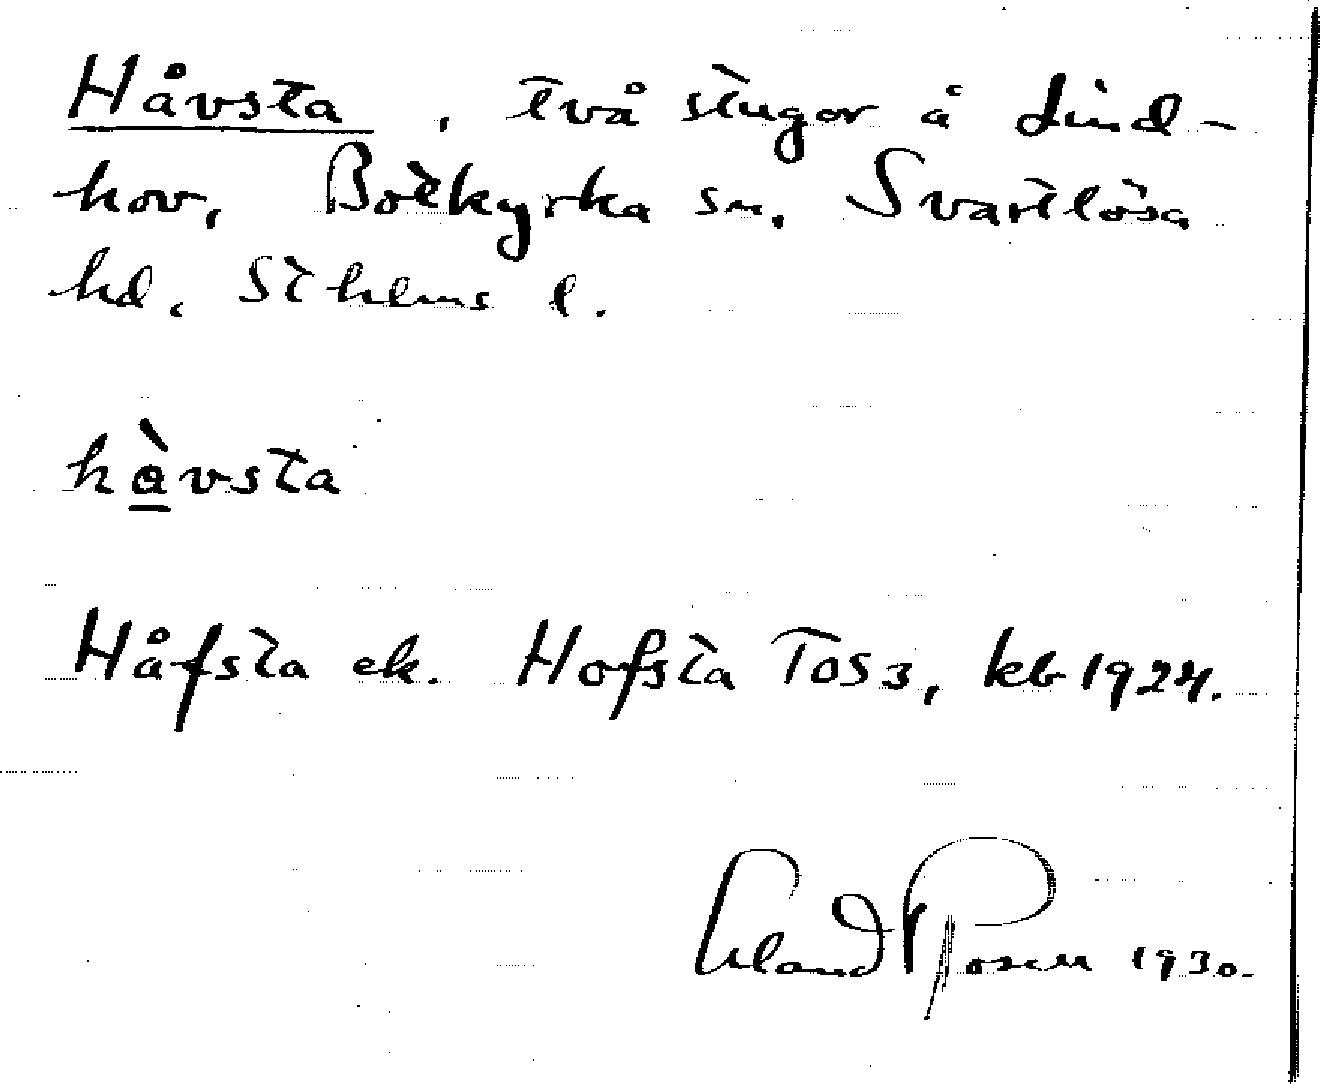 Håvsta, två stugor å Lind-
hov, Botkyrka sn, Svartlösa
hd, Sthlms l.
hàvsta
Håfsta ek. Hofsta Tos 3, kb 1924.
Erland Rosell 1930.